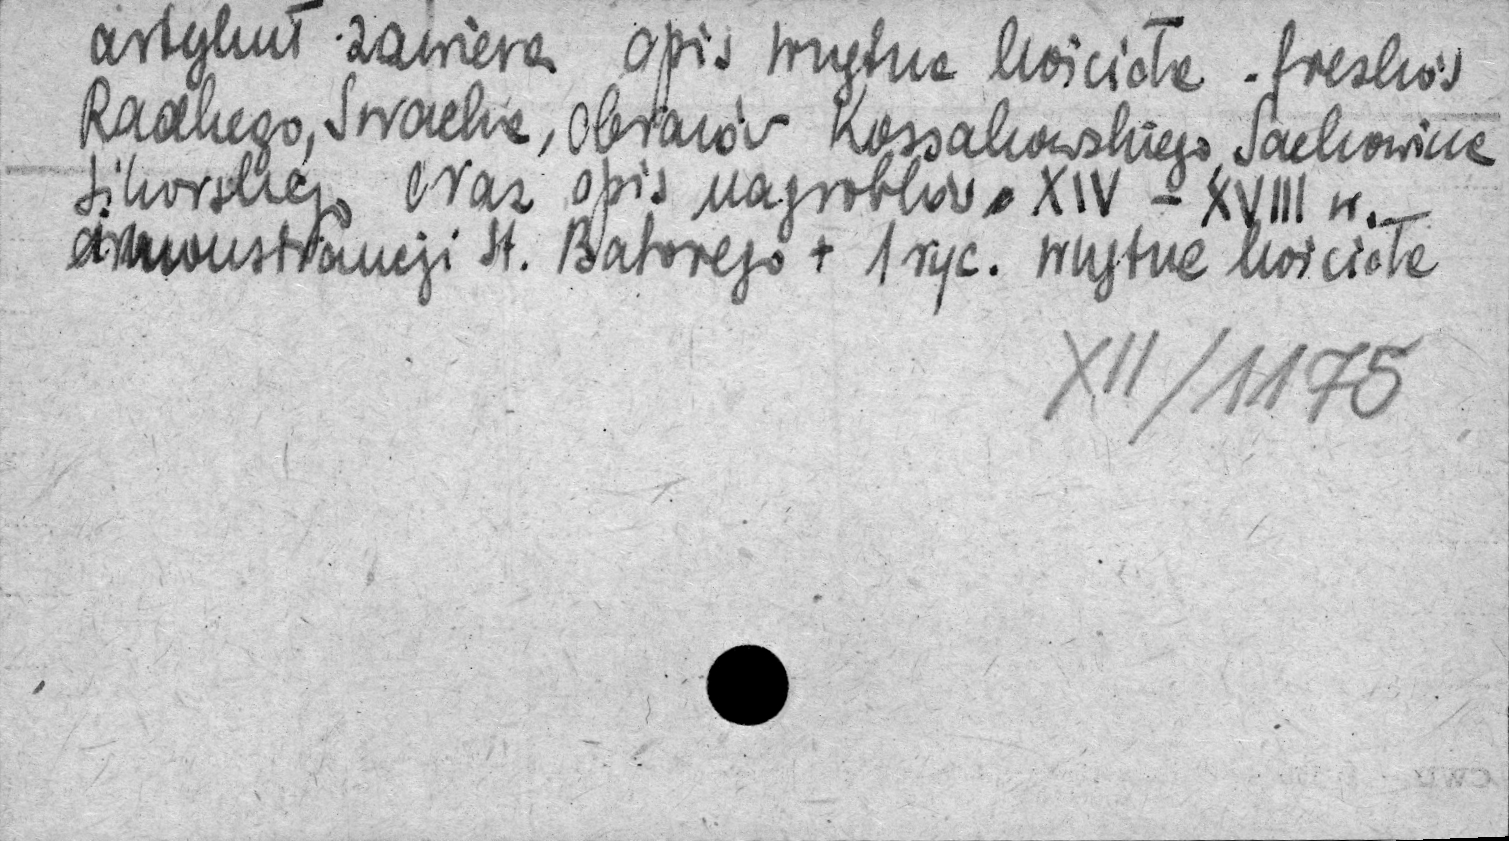 artykuł zawiera opis wnętrza kościoła - fresków
Radkego, Stracha, obrazów Kossakowskiego, Sachowicza
Sikorskiego oraz opis nagrobków XIV - XVIII w.
i monstrancji St. Batorego + 1 ryc. wnętrza kościoła
XII/1175